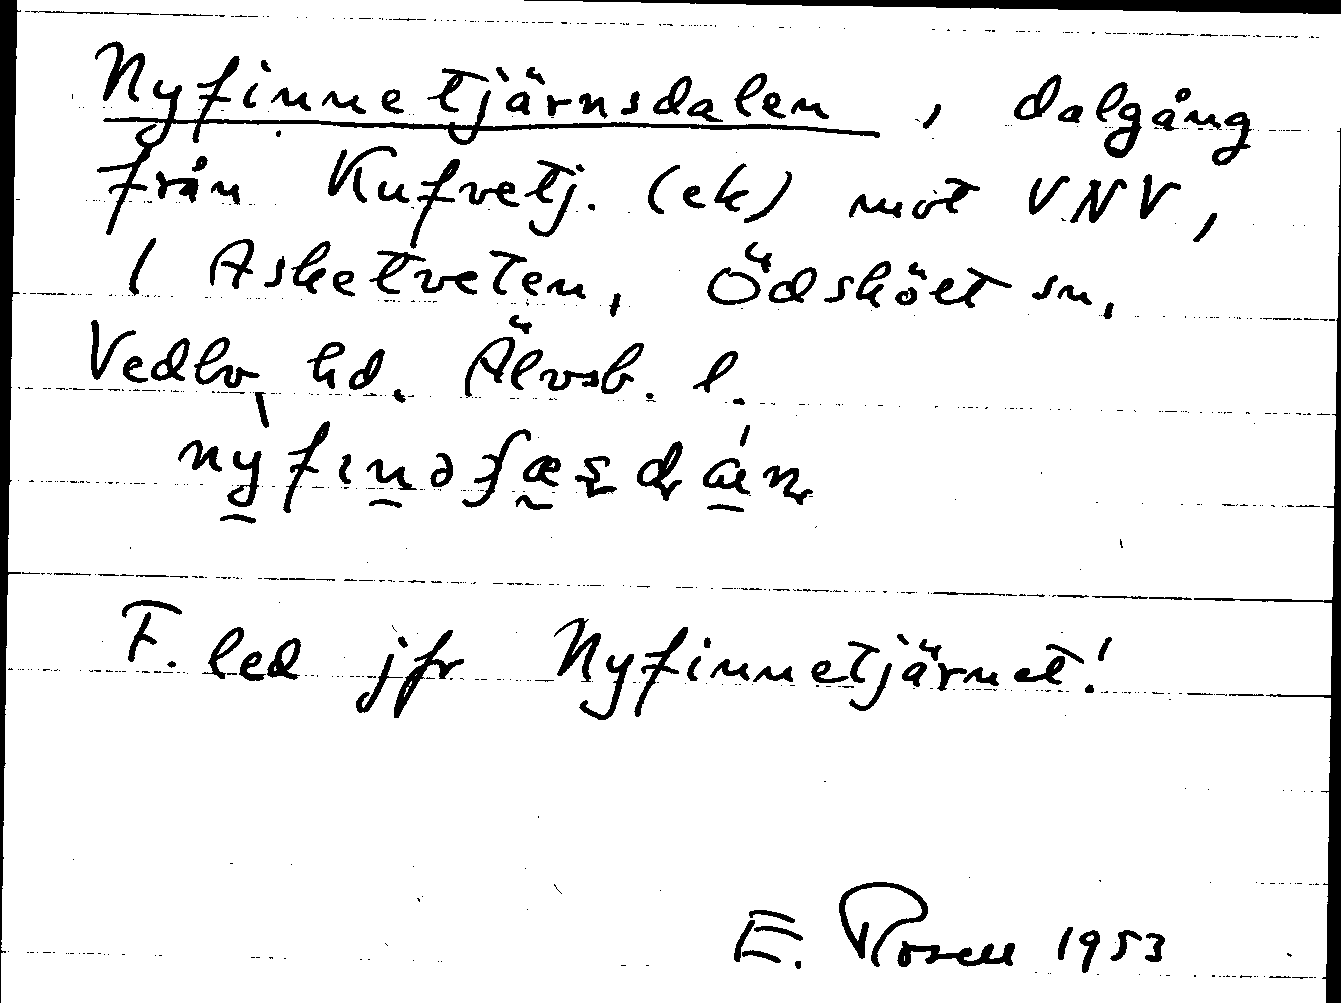 Nyfinnetjärnsdalen, dalgång
från Kufvetj. (ek) mot VNV,
/ Asketveten, Ödsköet sn,
Vedbo hd. Älvsb. l.
F. led jfr Nyfinnetjärnet!
E. Rosell 1953